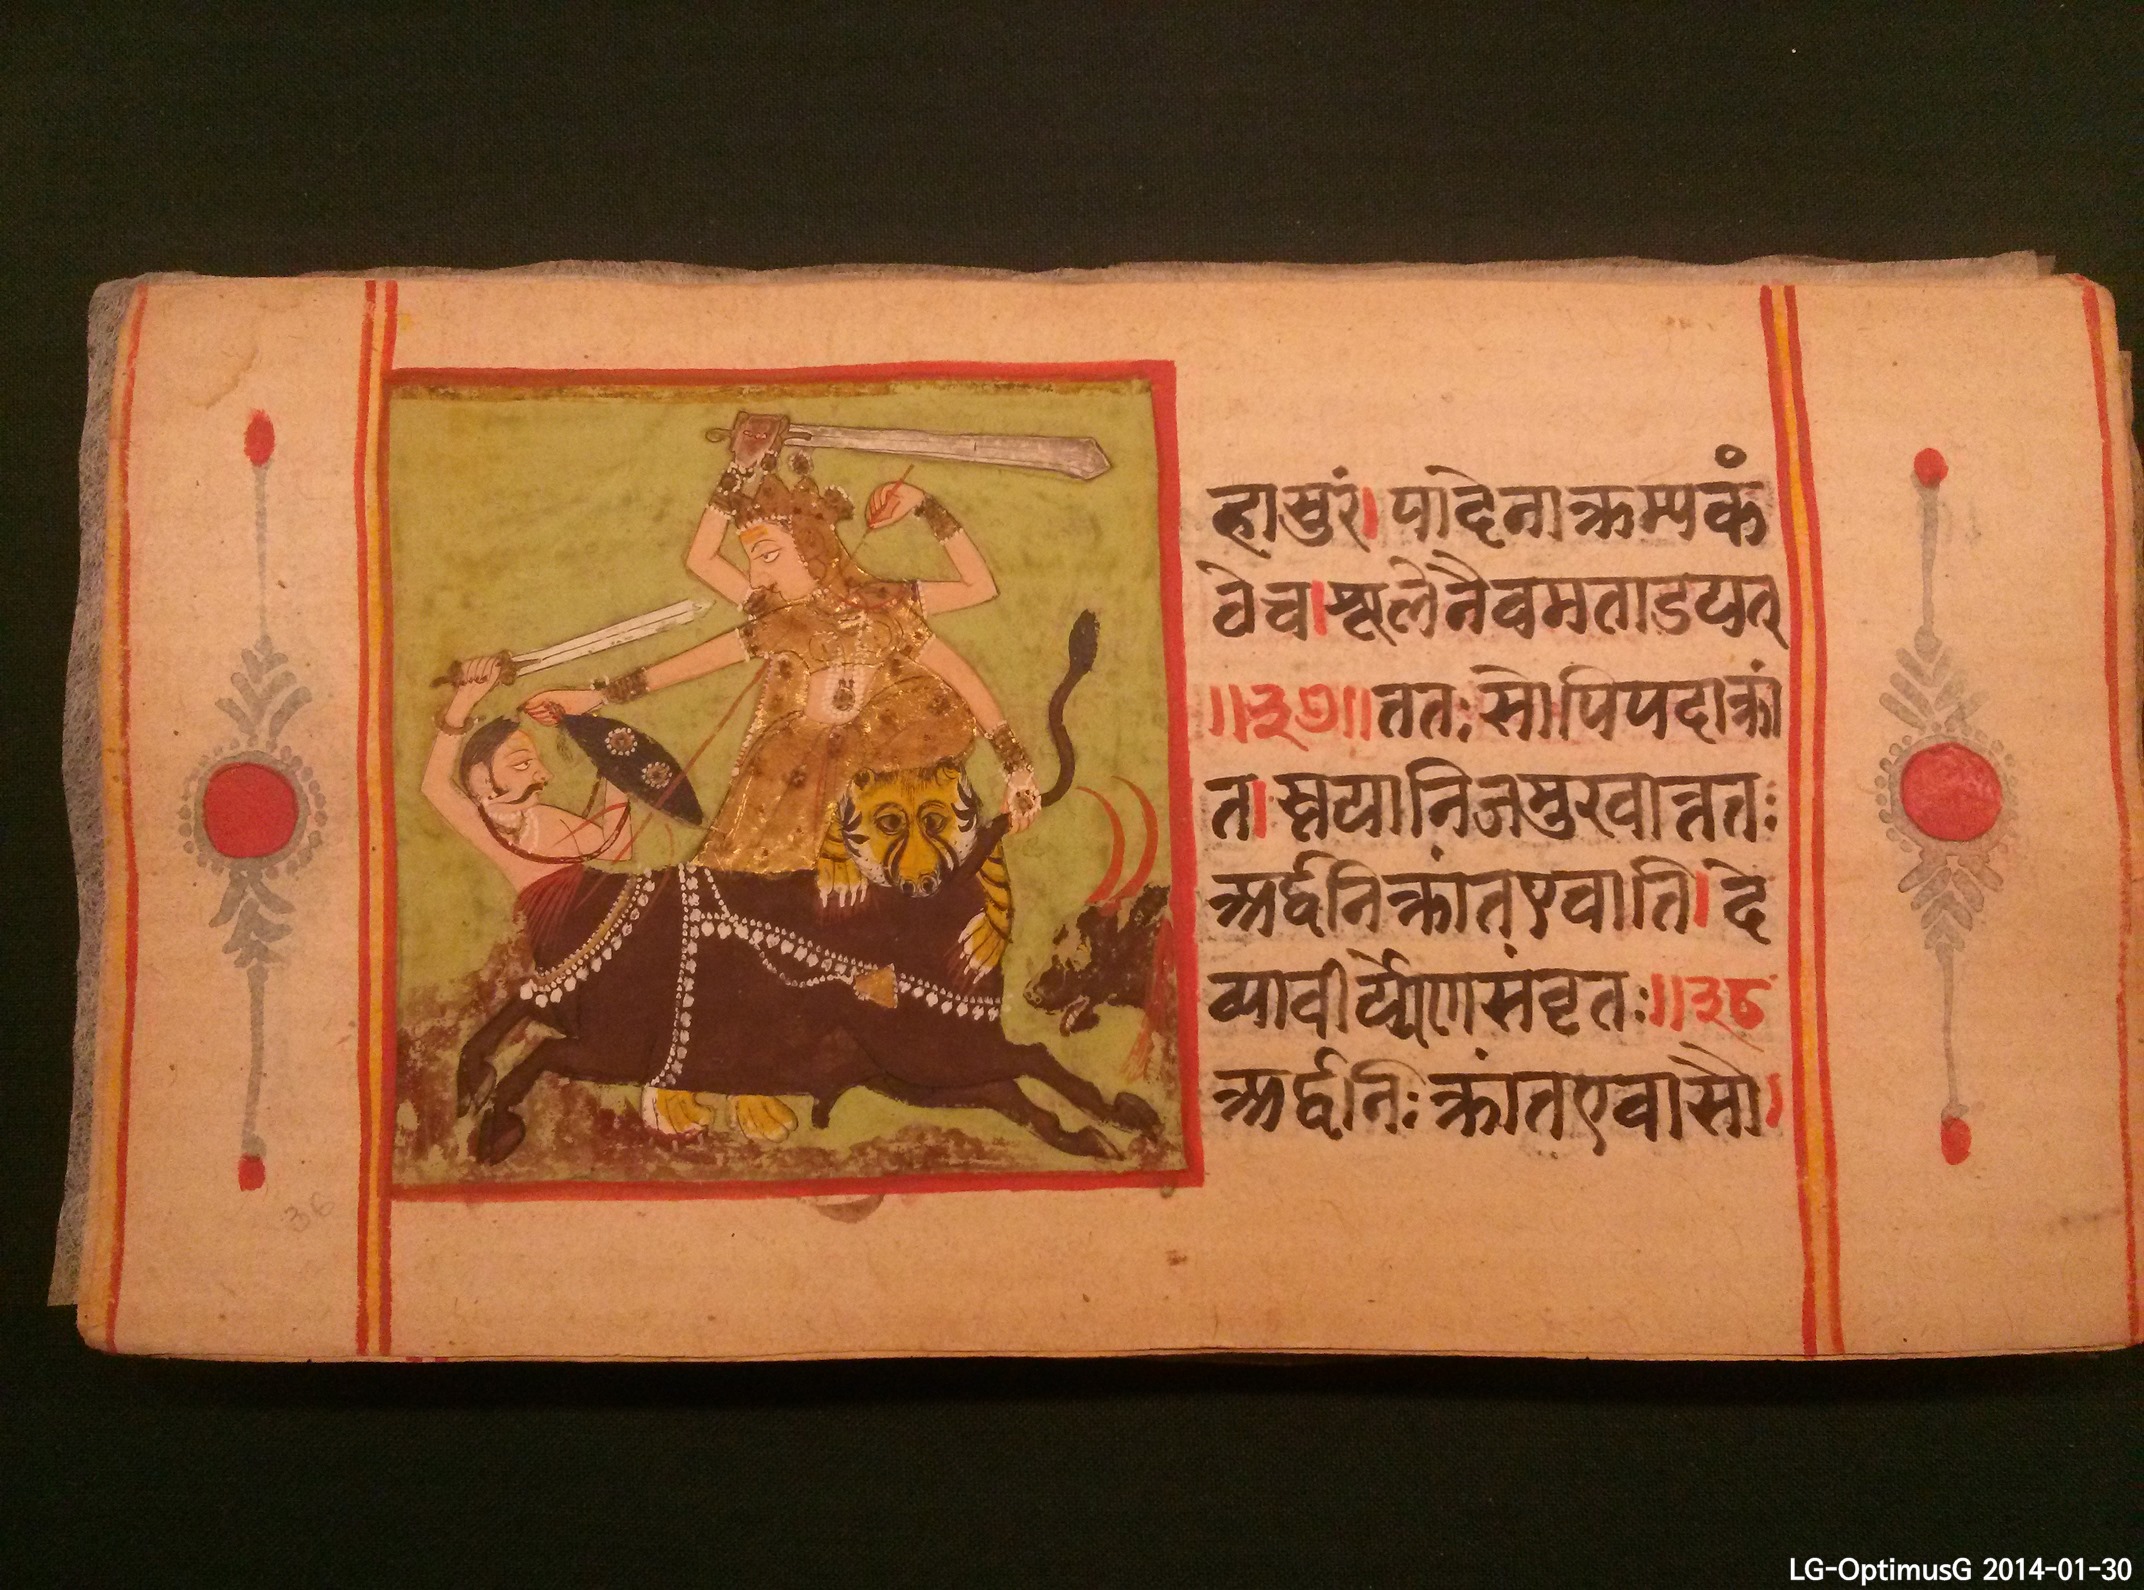 हासुरं। पादेनाक्रम्यकं
ठेच। शूलेनैवमताडयत्
॥३७॥ ततः सोपिपदाक्रां
त। स्तयानिजमुखात्ततः
अर्द्धनिक्रांतएवाति। दे
व्यावीर्य्येणसंवृतः॥३८
अर्द्धनिःक्रांतएवासौ।
36
LG-OptimusG 2014-01-30